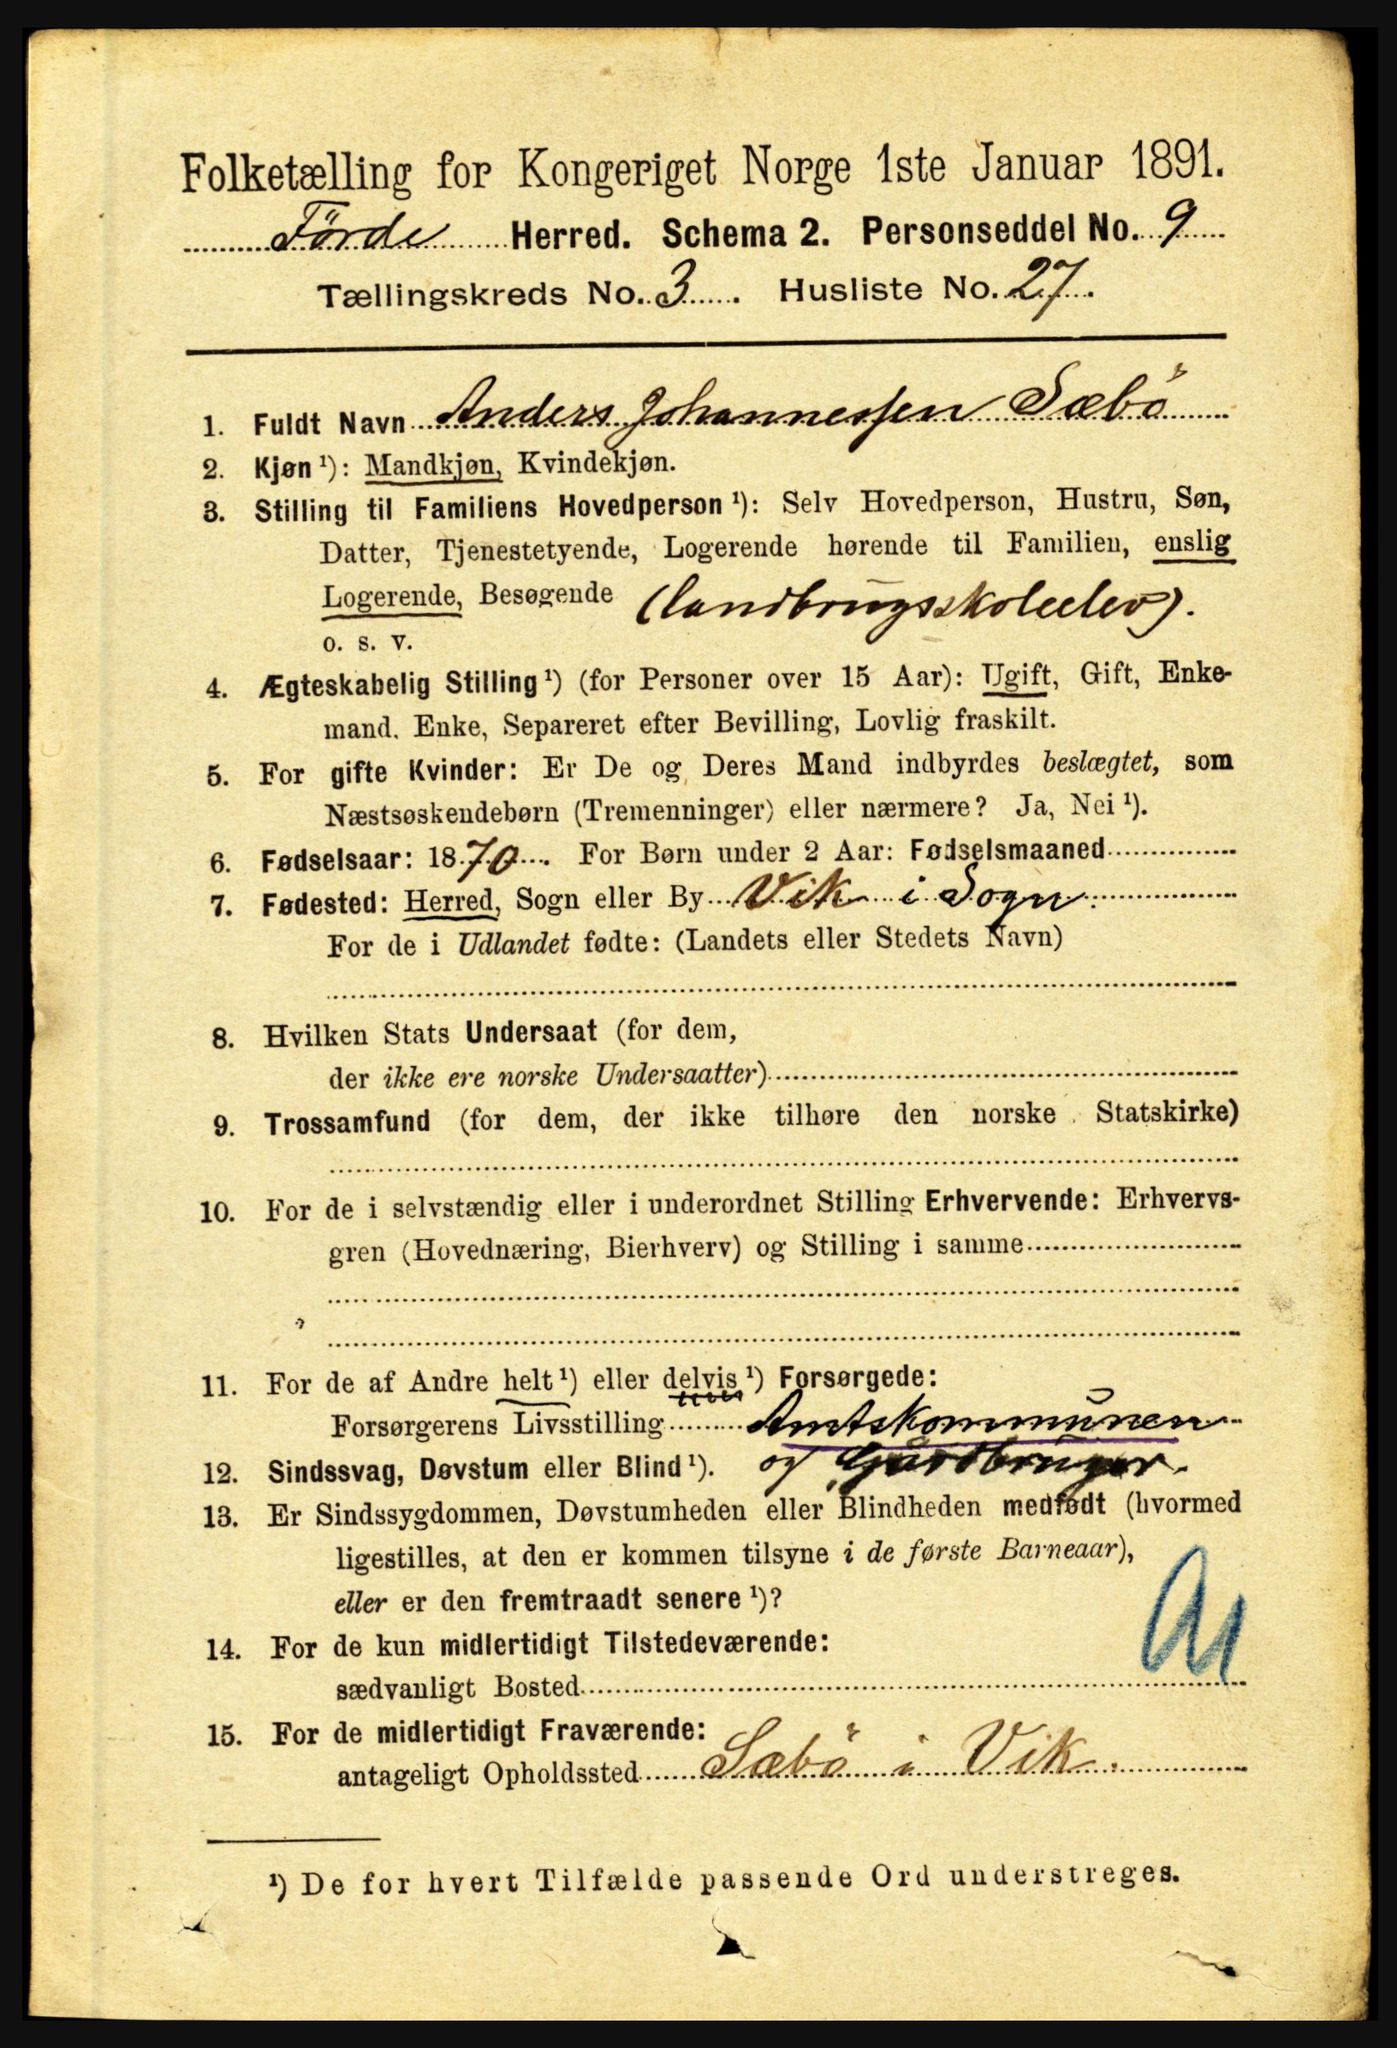 Folketælling for Kongeriget Norge 1ste Januar 1891.
Förde Herred. Schema 2. Personseddel No. 9
Tællingskreds No. 3. Husliste No. 27.
1. Fuldt Navn Anders Johannessen Sæbö
2. Kjøn ¹): Mandkjøn, Kvindekjøn.
3. Stilling til Familiens Hovedperson ¹): Selv Hovedperson, Hustru, Søn,
Datter, Tjenestetyende, Logerende hørende til Familien, enslig
Logerende, Besøgende (landbrugsskoleelev).
o. s. v.
4. Ægteskabelig Stilling ¹) (for Personer over 15 Aar): Ugift, Gift, Enke-
mand, Enke, Separeret efter Bevilling, Lovlig fraskilt.
5. For gifte Kvinder: Er De og Deres Mand indbyrdes beslægtet, som
Næstsøskendebørn (Tremenninger) eller nærmere? Ja, Nei ¹).
6. Fødselsaar: 1870. For Børn under 2 Aar: Fødselsmaaned
7. Fødested: Herred, Sogn eller By Vik i Sogn.
For de i Udlandet fødte: (Landets eller Stedets Navn)
8. Hvilken Stats Undersaat (for dem,
der ikke ere norske Undersaatter)
9. Trossamfund (for dem, der ikke tilhøre den norske Statskirke)
10. For de i selvstændig eller i underordnet Stilling Erhvervende: Erhvervs-
gren (Hovednæring, Bierhverv) og Stilling i samme
11. For de af Andre helt ¹) eller delvis ¹) Forsørgede:
Forsørgerens Livsstilling Amtskommunen
12. Sindssvag, Døvstum eller Blind ¹). og Gårdbruger.
13. Er Sindssygdommen, Døvstumheden eller Blindheden medfødt (hvormed
ligestilles, at den er kommen tilsyne i de første Barneaar),
eller er den fremtraadt senere ¹)?
14. For de kun midlertidigt Tilstedeværende:
sædvanligt Bosted
15. For de midlertidigt Fraværende:
antageligt Opholdssted Sæbö i Vik.
¹) De for hvert Tilfælde passende Ord understreges.